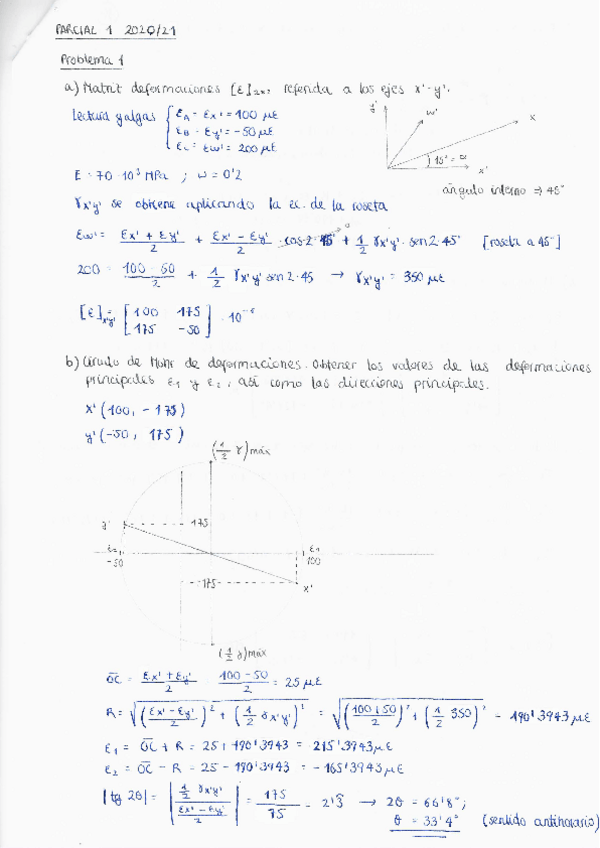 PARCIAL 1 2020/21
Problema 1
a) Matriz deformaciones [ε]2x2, referida a los ejes x'-y'.
Lectura galgas { εA = εx' = 100 με
εB = εy' = -50 με
εc = εw' = 200 με
y' w' x
15° = α x'
E = 70·10³ MPa ; ω = 0'2
ángulo interno ⇒ 45°
γx'y' se obtiene aplicando la ec. de la roseta
εw' = (εx' + εy')/2 + (εx' - εy')/2 · cos 2·45° + 1/2 γx'y' · sen 2·45° [roseta a 45°]
200 = (100 - 50)/2 + 1/2 γx'y' sen 2·45 → γx'y' = 350 με
[ε]x'y' = [100 175
175 -50] · 10⁻⁶
b) Círculo de Mohr de deformaciones. Obtener los valores de las deformaciones
principales ε1 y ε2, así como las direcciones principales.
x' (100, -175)
y' (-50, 175)
(1/2 γ) máx
y' 175
ε2 ε1
-50 100
175 x'
(1/2 γ) máx
OC = (εx' + εy')/2 = (100 - 50)/2 = 25 με
R = √(((εx' - εy')/2)² + (1/2 γx'y')²) = √(((100+50)/2)² + (1/2 350)²) = 190'3943 με
ε1 = OC + R = 25 + 190'3943 = 215'3943 με
ε2 = OC - R = 25 - 190'3943 = -165'3943 με
|tg 2θ| = |(1/2 γx'y')/((εx' - εy')/2)| = 175/75 = 2'3̂ → 2θ = 66'8°;
θ = 33'4° (sentido antihorario)